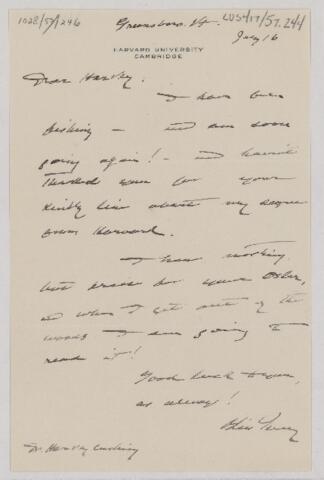 1028/57/246
CUS417/57.244
Greensboro, Vt.
July 16
HARVARD UNIVERSITY
CAMBRIDGE
Dear Harvey:
I have been
fishing — and am soon
going again! — and haven't
thanked you for your
kindly line about my degree
from Harvard.
I hear nothing
but praise for your Osler,
and when I get out of the
woods I am going to
read it!
Good luck to you,
as always!
Bliss Perry
Dr. Harvey Cushing